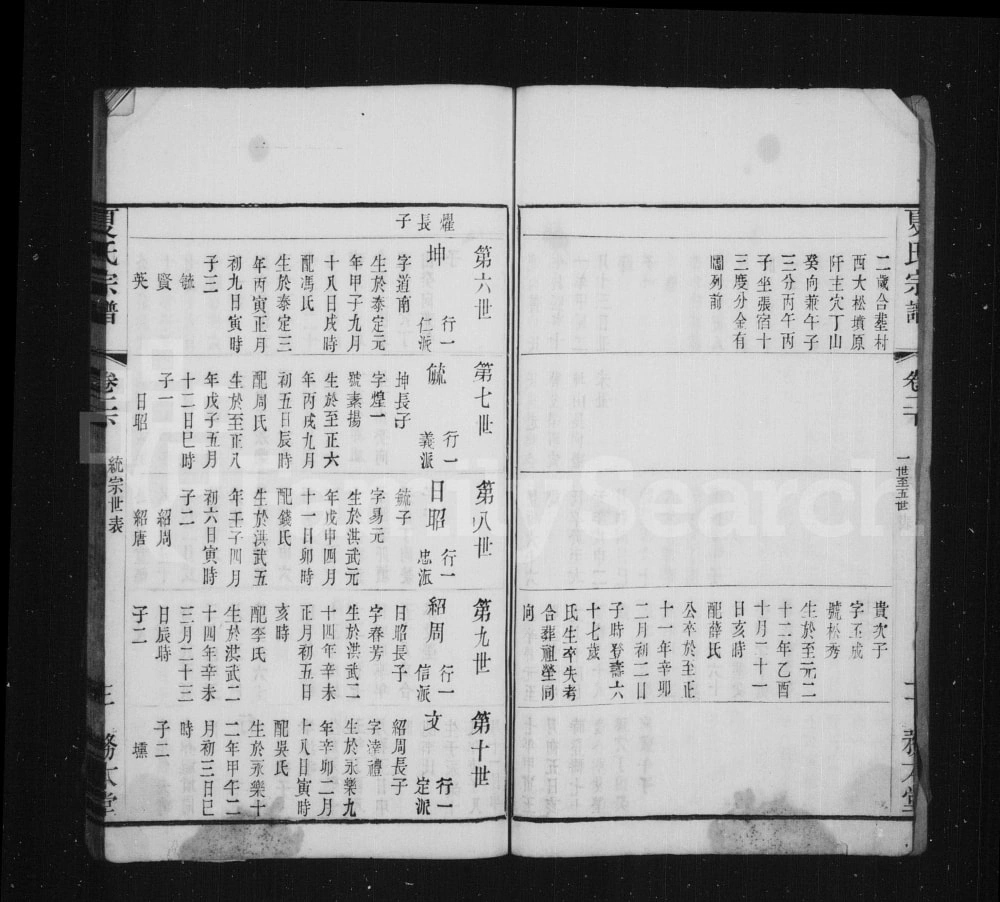 夏氏宗譜
卷二
一世至五世表
二
務本堂
二歲合墓村
西大松墳原
阡主穴丁山
癸向兼午子
三分丙午丙
子坐張宿十
三度分金有
圖列前
貴次子
字玉成
號松秀
生於至元二
十二年乙酉
十月二十一
日亥時
配薛氏
公卒於至正
十一年辛卯
二月初二日
子時登壽六
十七歲
氏生卒失考
合葬祖塋同
向
第六世
第七世
第八世
第九世
第十世
燿長子
坤 行一 仁派
字道南
生於泰定元
年甲子九月
十八日戌時
配馮氏
生於泰定三
年丙寅正月
初九日寅時
子三
毓
賢
英
毓 行一 義派
坤長子
字煌一
號素揚
生於至正六
年丙戌九月
初五日辰時
配周氏
生於至正八
年戊子五月
十二日巳時
子一
日昭
日昭 行一 忠派
毓子
字易元
生於洪武元
年戊申四月
十一日卯時
配錢氏
生於洪武五
年壬子四月
初六日寅時
子二
紹周
紹唐
紹周 行一 信派
日昭長子
字春芳
生於洪武二
十四年辛未
正月初五日
亥時
配李氏
生於洪武二
十四年辛未
三月二十三
日辰時
子二
文 行一 定派
紹周長子
字達禮
生於永樂九
年辛卯二月
十八日寅時
配吳氏
生於永樂十
二年甲午二
月初三日巳
時
子二
壎
夏氏宗譜
卷二
統宗世表
三
務本堂